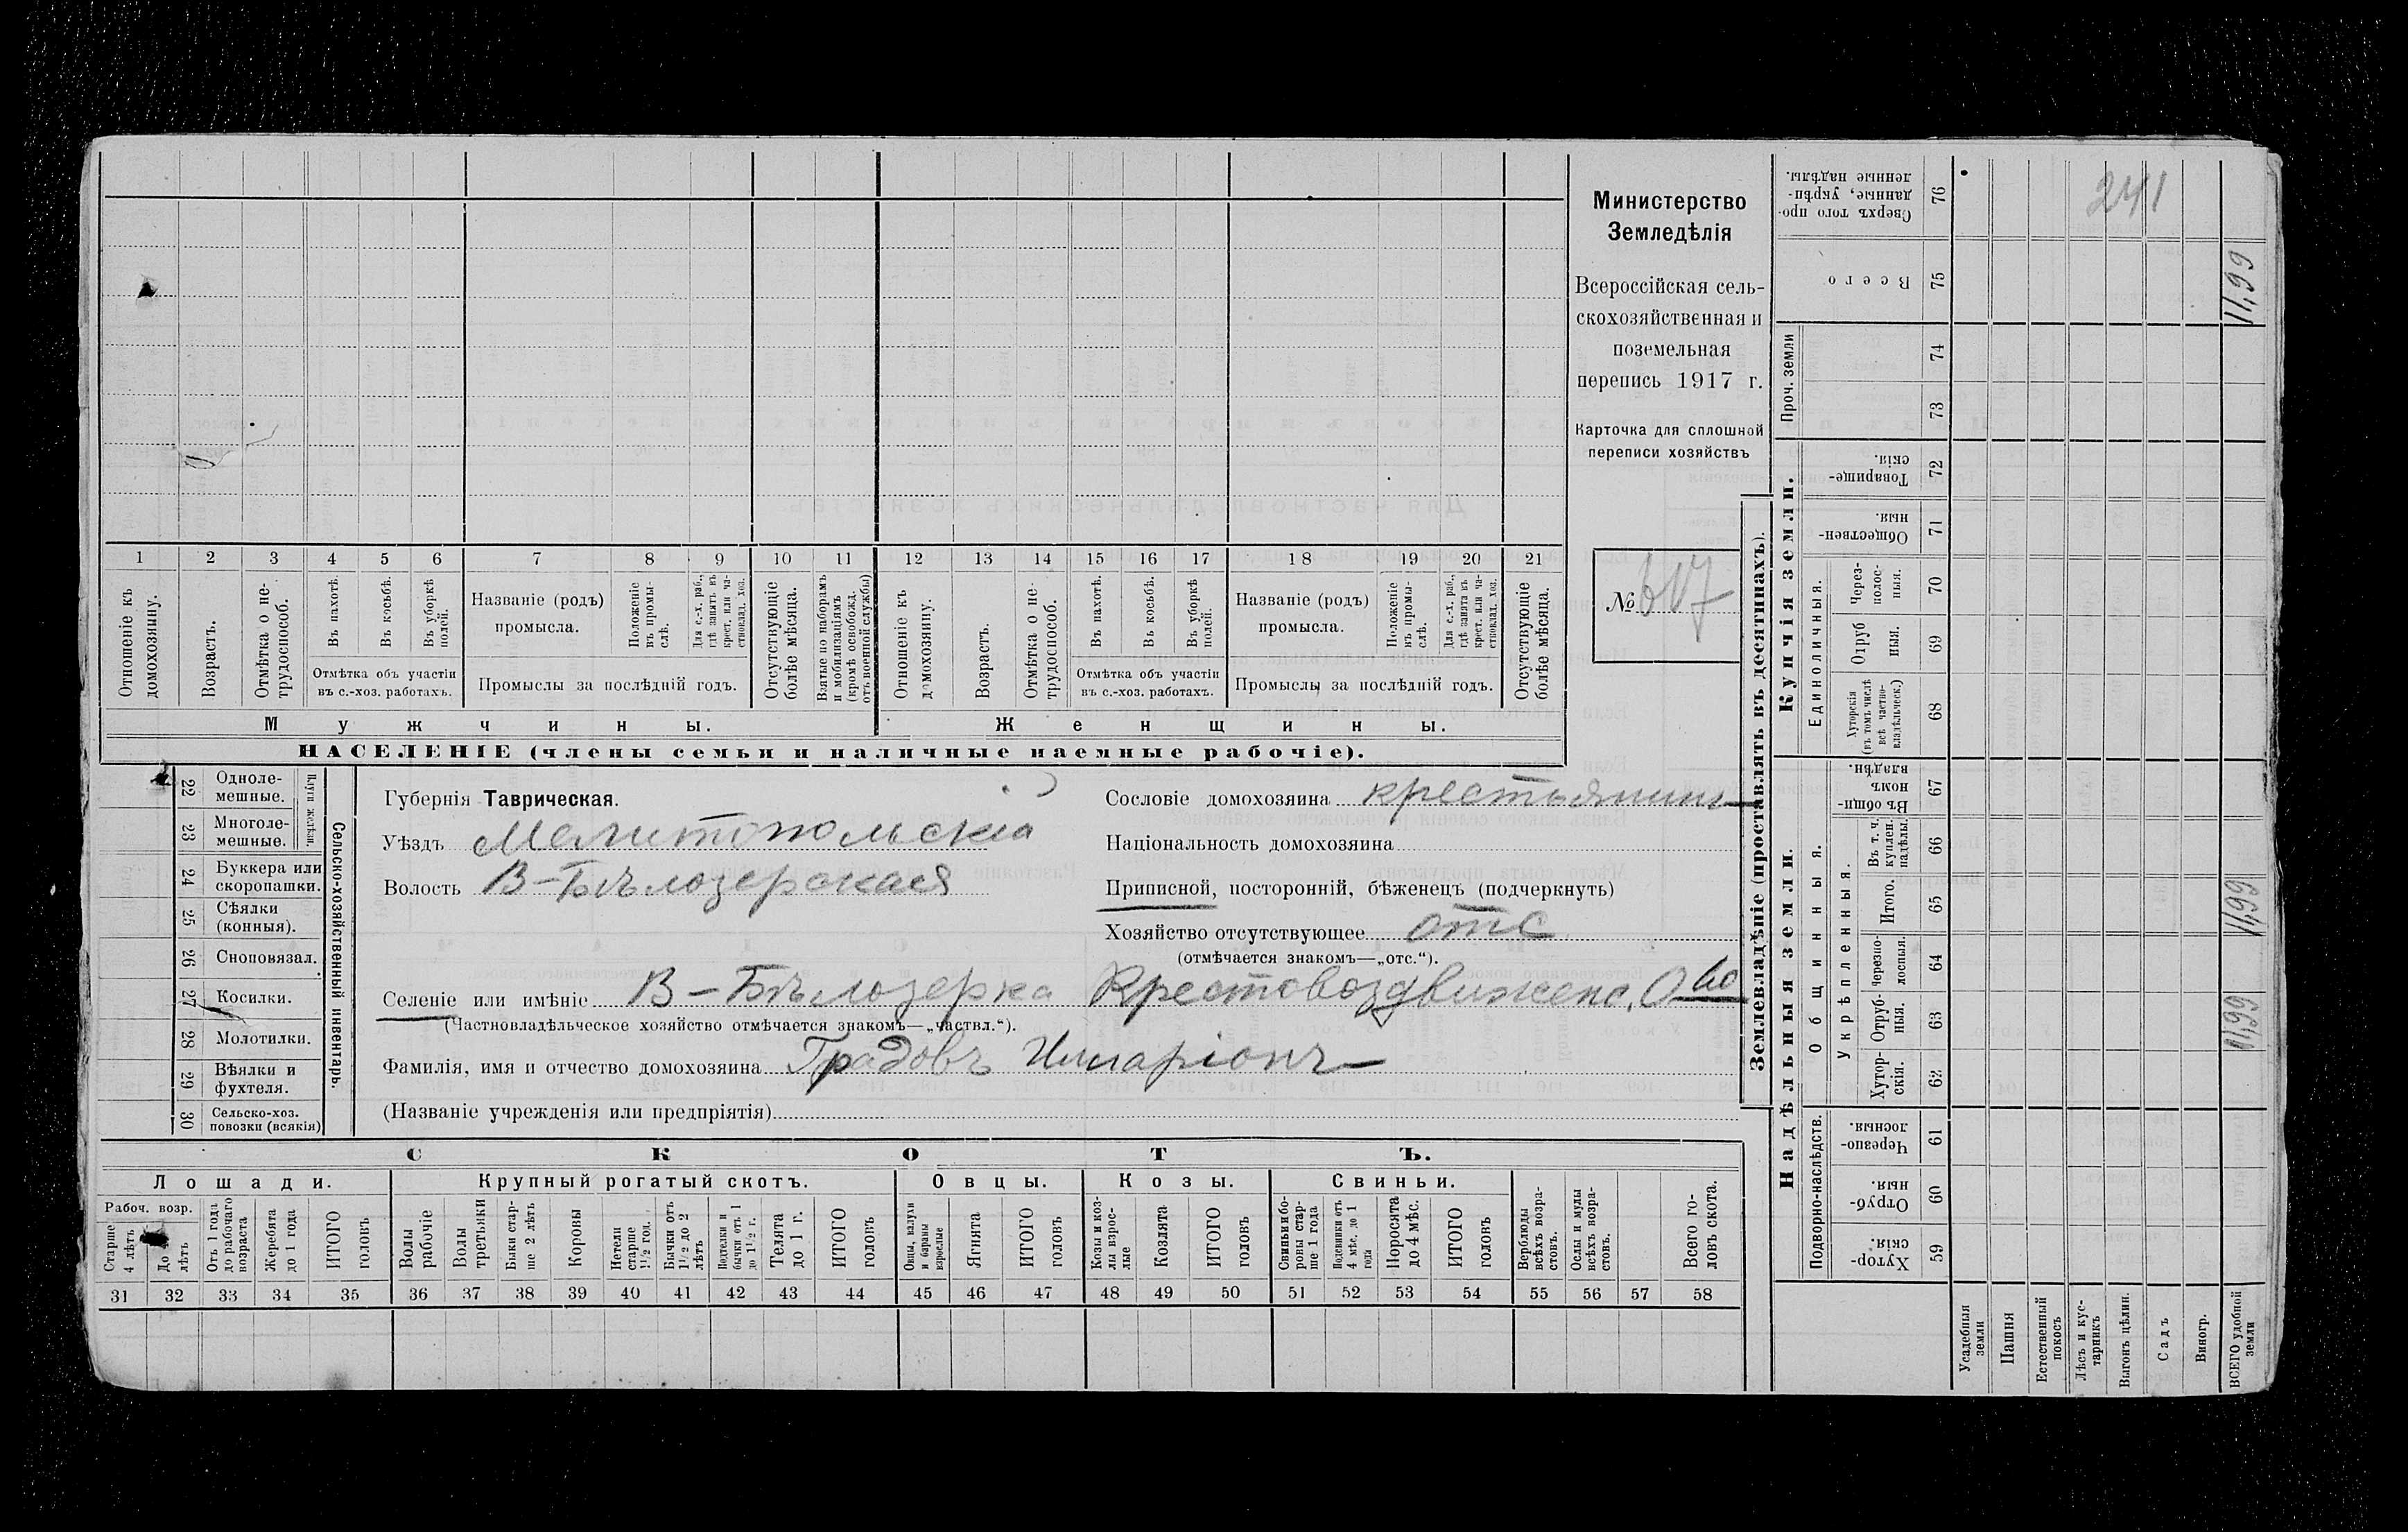 1 2 3 4 5 6 7 8 9 10 11 12 13 14 15 16 17 18 19 20 21
Отношеніе къ домохозяину.
Возрастъ.
Отмѣтка о не-
трудоспособ.
Въ пахотѣ.
Въ косьбѣ.
Въ уборкѣ
полей.
Отмѣтка объ участіи
въ с.-хоз. работахъ.
Названіе (родъ)
промысла.
Положеніе
въ промы-
слѣ.
Для с.-х. раб.,
гдѣ занятъ въ
крест. или ча-
стновлад. хоз.
Промыслы за послѣдній годъ.
Отсутствующіе
болѣе мѣсяца.
Взятые по наборамъ
и мобилизаціямъ
(кромѣ освобожд.
отъ военной службы)
Отношеніе къ
домохозяину.
Возрастъ.
Отмѣтка о не-
трудоспособ.
Въ пахотѣ.
Въ косьбѣ.
Въ уборкѣ
полей.
Отмѣтка объ участіи
въ с.-хоз. работахъ.
Названіе (родъ)
промысла.
Положеніе
въ промы-
слѣ.
Для с.-х. раб.,
гдѣ занята въ
крест. или ча-
стновлад. хоз.
Промыслы за послѣдній годъ.
Отсутствующіе
болѣе мѣсяца.
Мужчины.
Женщины.
НАСЕЛЕНІЕ (члены семьи и наличные наемные рабочіе).
Министерство
Земледѣлія
Всероссійская сель-
скохозяйственная и
поземельная
перепись 1917 г.
Карточка для сплошной
переписи хозяйствъ
№ 617
22 Одноле-
мешные.
23 Многоле-
мешные.
Плуги желѣзн.
24 Буккера или
скоропашки.
25 Сѣялки
(конныя).
26 Сноповязал.
27 Косилки.
28 Молотилки.
29 Вѣялки и
фухтеля.
30 Сельско-хоз.
повозки (всякія)
Сельско-хозяйственный инвентарь.
Губернія Таврическая.
Уѣздъ Мелитопольскій
Волость В-Бѣлозерская
Сословіе домохозяина крестьянинъ
Національность домохозяина
Приписной, посторонній, бѣженецъ (подчеркнуть)
Хозяйство отсутствующее отс
(отмѣчается знакомъ—„отс.“).
Селеніе или имѣніе В-Бѣлозерка Крестовоздвиженс. О-во
(Частновладѣльческое хозяйство отмѣчается знакомъ—„частвл.“).
Фамилія, имя и отчество домохозяина Градовъ Иларіонъ
(Названіе учрежденія или предпріятія)
СКОТЪ.
Лошади.
Крупный рогатый скотъ.
Овцы.
Козы.
Свиньи.
Рабоч. возр.
Старше
4 лѣтъ
До
лѣтъ
Отъ 1 года
до рабочаго
возраста
Жеребята
до 1 года
ИТОГО
головъ
Волы
рабочіе
Волы
третьяки
Быки стар-
ше 2 лѣтъ
Коровы
Нетели
старше
1½ год.
Бычки отъ
1½ до 2
лѣтъ
Подтелки и
бычки отъ 1
до 1½ г.
Телята
до 1 г.
ИТОГО
головъ
Овцы, валухи
и бараны
взрослые
Ягнята
ИТОГО
головъ
Козы и коз-
лы взрос-
лые
Козлята
ИТОГО
головъ
Свиньи и бо-
ровы стар-
ше 1 года
Подсвинки отъ
4 мѣс. до 1
года
Поросята
до 4 мѣс.
ИТОГО
головъ
Верблюды
всѣхъ возра-
стовъ.
Ослы и мулы
всѣхъ возра-
стовъ.
Всего го-
ловъ скота.
31 32 33 34 35 36 37 38 39 40 41 42 43 44 45 46 47 48 49 50 51 52 53 54 55 56 57 58
Землевладѣніе (проставлять въ десятинахъ).
Купчія земли.
Надѣльныя земли.
Сверхъ того про-
данные, укрѣп-
ленные надѣлы.
76
241
Всего
75
11,99
Проч. земли
74
73
Товарище-
скія.
72
Обществен-
ныя.
71
Единоличныя.
Через-
полос-
ныя.
70
Отруб
ныя.
69
Хуторскія
(въ томъ числѣ
всѣ частно-
владѣльческ.)
68
Общинныя.
Въ общин-
номъ
владѣн.
67
Укрѣпленныя.
Въ т. ч.
куплен.
надѣлы.
66
Итого.
65
11,99
черезпо-
лосныя.
64
Отруб-
ныя.
63
11,99
Хутор-
скія.
62
Подворно-наслѣдств.
Черезпо-
лосныя.
61
Отруб-
ныя.
60
Хутор-
скія.
59
Усадебныя
земли
Пашня
Естественный
покосъ
Лѣсъ и кус-
тарникъ
Выгонъ цѣлин.
Садъ
Виногр.
ВСЕГО удобной
земли